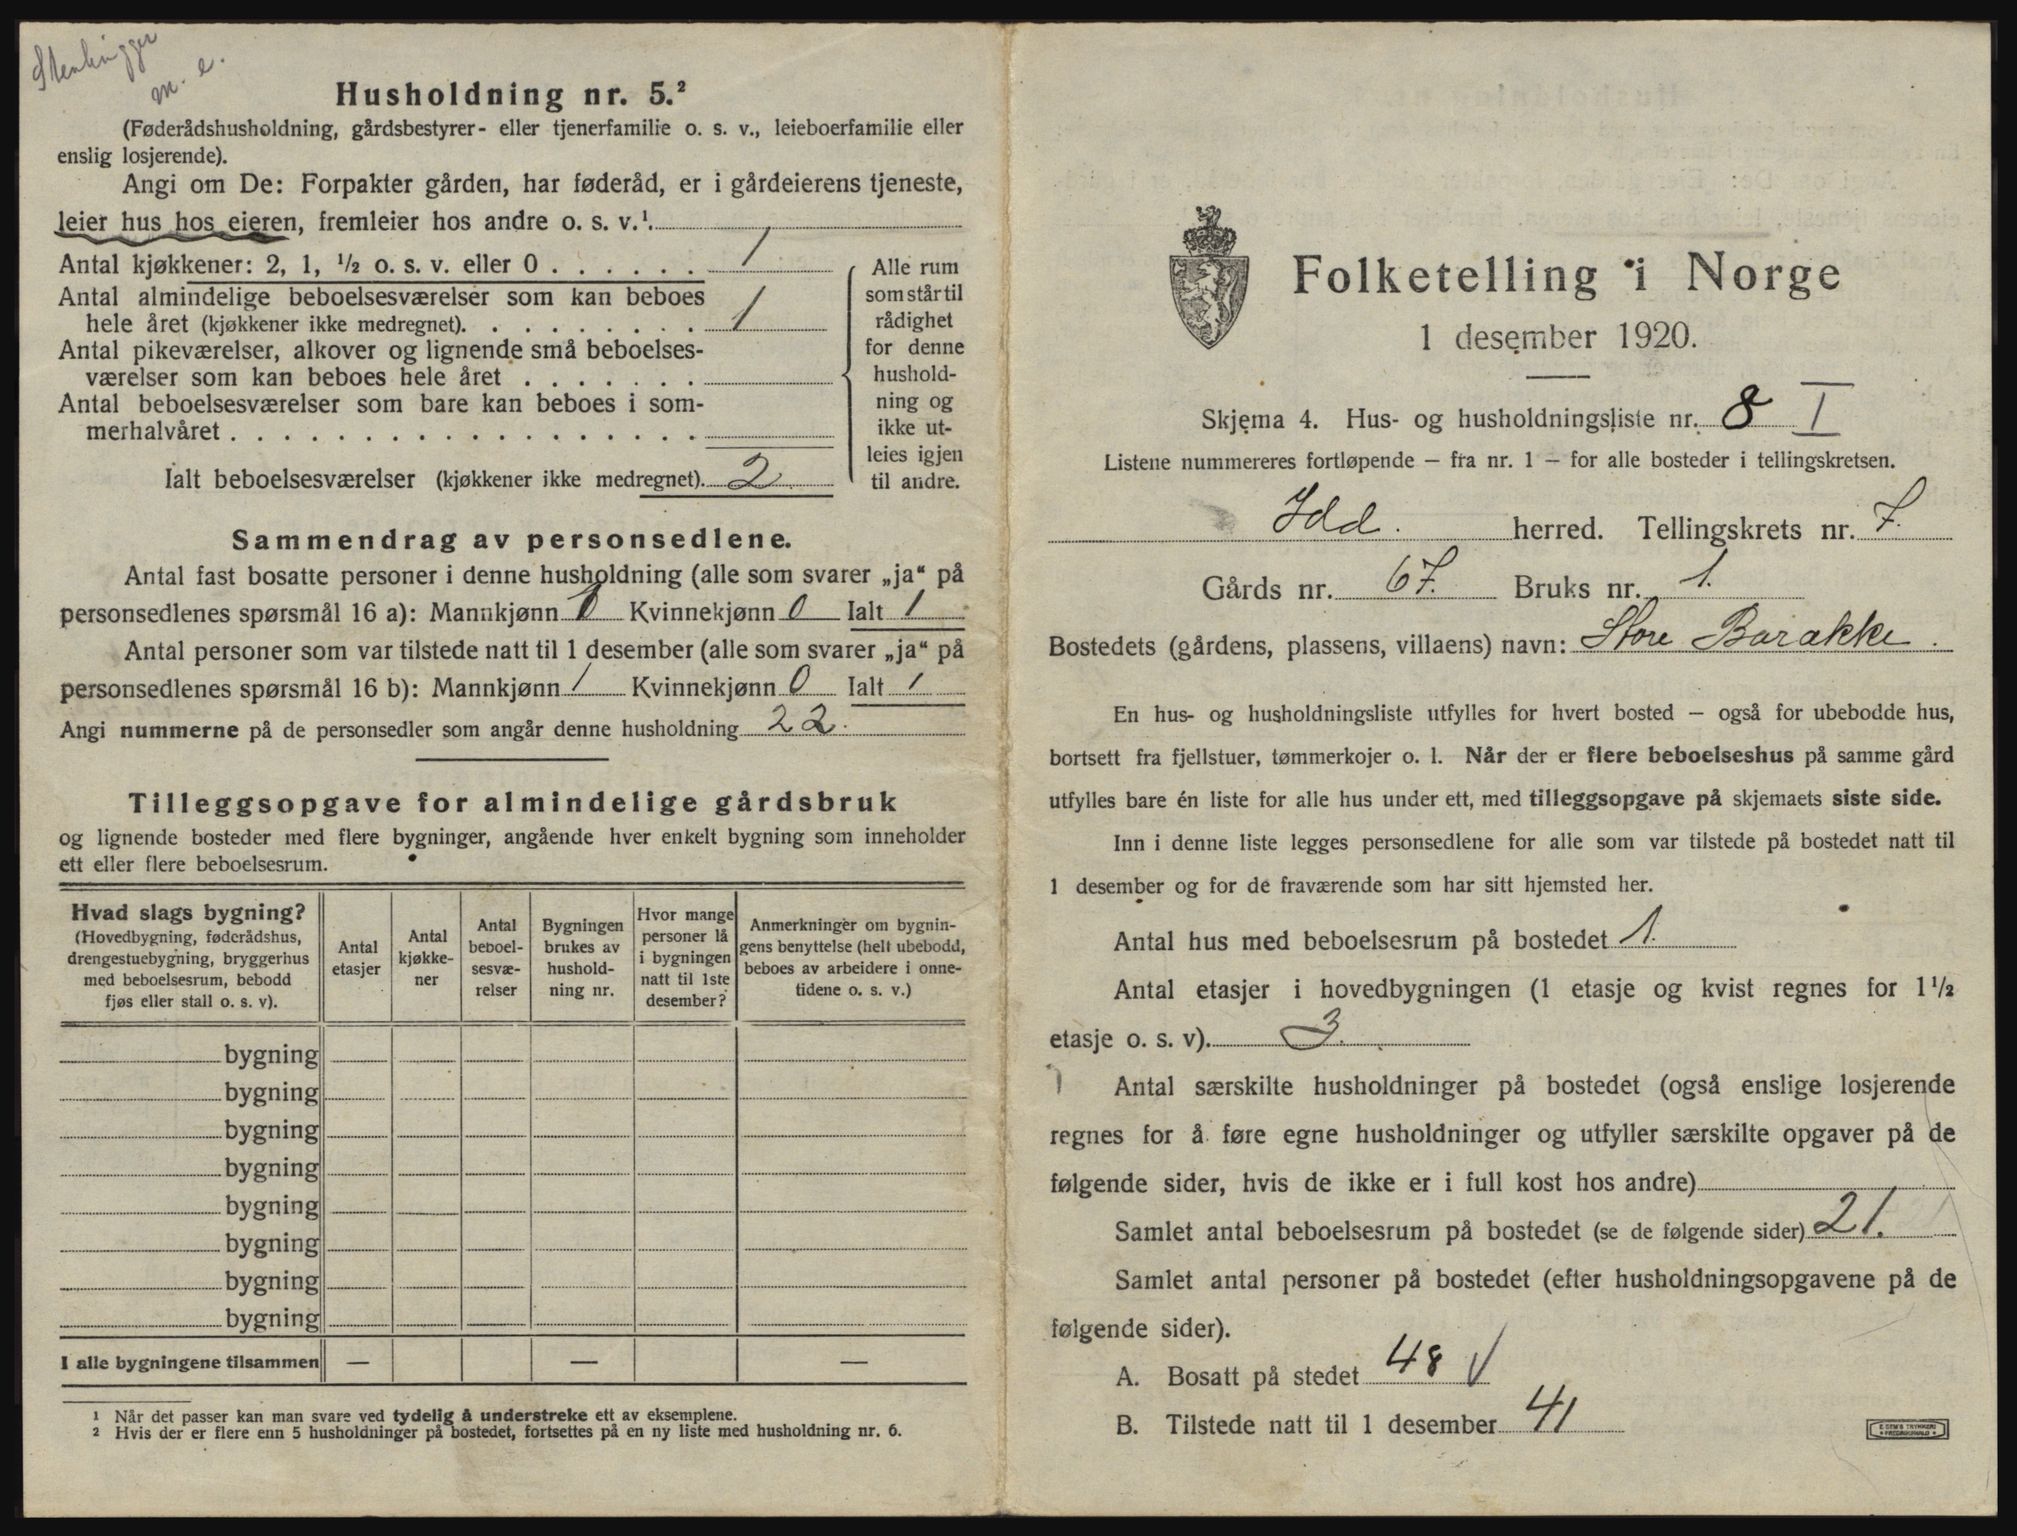 Stenhugger
m. e.
Husholdning nr. 5.²
(Føderådshusholdning, gårdsbestyrer- eller tjenerfamilie o. s. v., leieboerfamilie eller
enslig losjerende).
Angi om De: Forpakter gården, har føderåd, er i gårdeierens tjeneste,
leier hus hos eieren, fremleier hos andre o. s. v.¹.
Antal kjøkkener: 2, 1, ½ o. s. v. eller 0 . . . . . . 1
Antal almindelige beboelsesværelser som kan beboes
hele året (kjøkkener ikke medregnet). . . . . . . . . 1
Antal pikeværelser, alkover og lignende små beboelses-
værelser som kan beboes hele året . . . . . . .
Antal beboelsesværelser som bare kan beboes i som-
merhalvåret . . . . . . . . . . . . . . . . . .
Ialt beboelsesværelser (kjøkkener ikke medregnet). 2.
Alle rum
som står til
rådighet
for denne
hushold-
ning og
ikke ut-
leies igjen
til andre.
Sammendrag av personsedlene.
Antal fast bosatte personer i denne husholdning (alle som svarer „ja“ på
personsedlenes spørsmål 16 a): Mannkjønn 1 Kvinnekjønn 0 Ialt 1
Antal personer som var tilstede natt til 1 desember (alle som svarer „ja“ på
personsedlenes spørsmål 16 b): Mannkjønn 1 Kvinnekjønn 0 Ialt 1
Angi nummerne på de personsedler som angår denne husholdning 22.
Tilleggsopgave for almindelige gårdsbruk
og lignende bosteder med flere bygninger, angående hver enkelt bygning som inneholder
ett eller flere beboelsesrum.
Hvad slags bygning?
(Hovedbygning, føderådshus,
drengestuebygning, bryggerhus
med beboelsesrum, bebodd
fjøs eller stall o. s. v).
Antal
etasjer
Antal
kjøkke-
ner
Antal
beboel-
sesvæ-
relser
Bygningen
brukes av
hushold-
ning nr.
Hvor mange
personer lå
i bygningen
natt til 1ste
desember?
Anmerkninger om bygnin-
gens benyttelse (helt ubebodd,
beboes av arbeidere i onne-
tidene o. s. v.)
bygning
bygning
bygning
bygning
bygning
bygning
bygning
bygning
I alle bygningene tilsammen — — —
¹ Når det passer kan man svare ved tydelig å understreke ett av eksemplene.
² Hvis der er flere enn 5 husholdninger på bostedet, fortsettes på en ny liste med husholdning nr. 6.
Folketelling i Norge
1 desember 1920.
Skjema 4. Hus- og husholdningsliste nr. 8 I
Listene nummereres fortløpende – fra nr. 1 – for alle bosteder i tellingskretsen.
Idd. herred. Tellingskrets nr. 7.
Gårds nr. 67. Bruks nr. 1.
Bostedets (gårdens, plassens, villaens) navn: Store Barakke.
En hus- og husholdningsliste utfylles for hvert bosted – også for ubebodde hus,
bortsett fra fjellstuer, tømmerkojer o. l. Når der er flere beboelseshus på samme gård
utfylles bare én liste for alle hus under ett, med tilleggsopgave på skjemaets siste side.
Inn i denne liste legges personsedlene for alle som var tilstede på bostedet natt til
1 desember og for de fraværende som har sitt hjemsted her.
Antal hus med beboelsesrum på bostedet 1.
Antal etasjer i hovedbygningen (1 etasje og kvist regnes for 1½
etasje o. s. v). 3.
Antal særskilte husholdninger på bostedet (også enslige losjerende
regnes for å føre egne husholdninger og utfyller særskilte opgaver på de
følgende sider, hvis de ikke er i full kost hos andre)
Samlet antal beboelsesrum på bostedet (se de følgende sider) 21.
Samlet antal personer på bostedet (efter husholdningsopgavene på de
følgende sider).
A. Bosatt på stedet 48 √
B. Tilstede natt til 1 desember 41
E. SEM'S TRYKKERI
FREDRIKSHALD